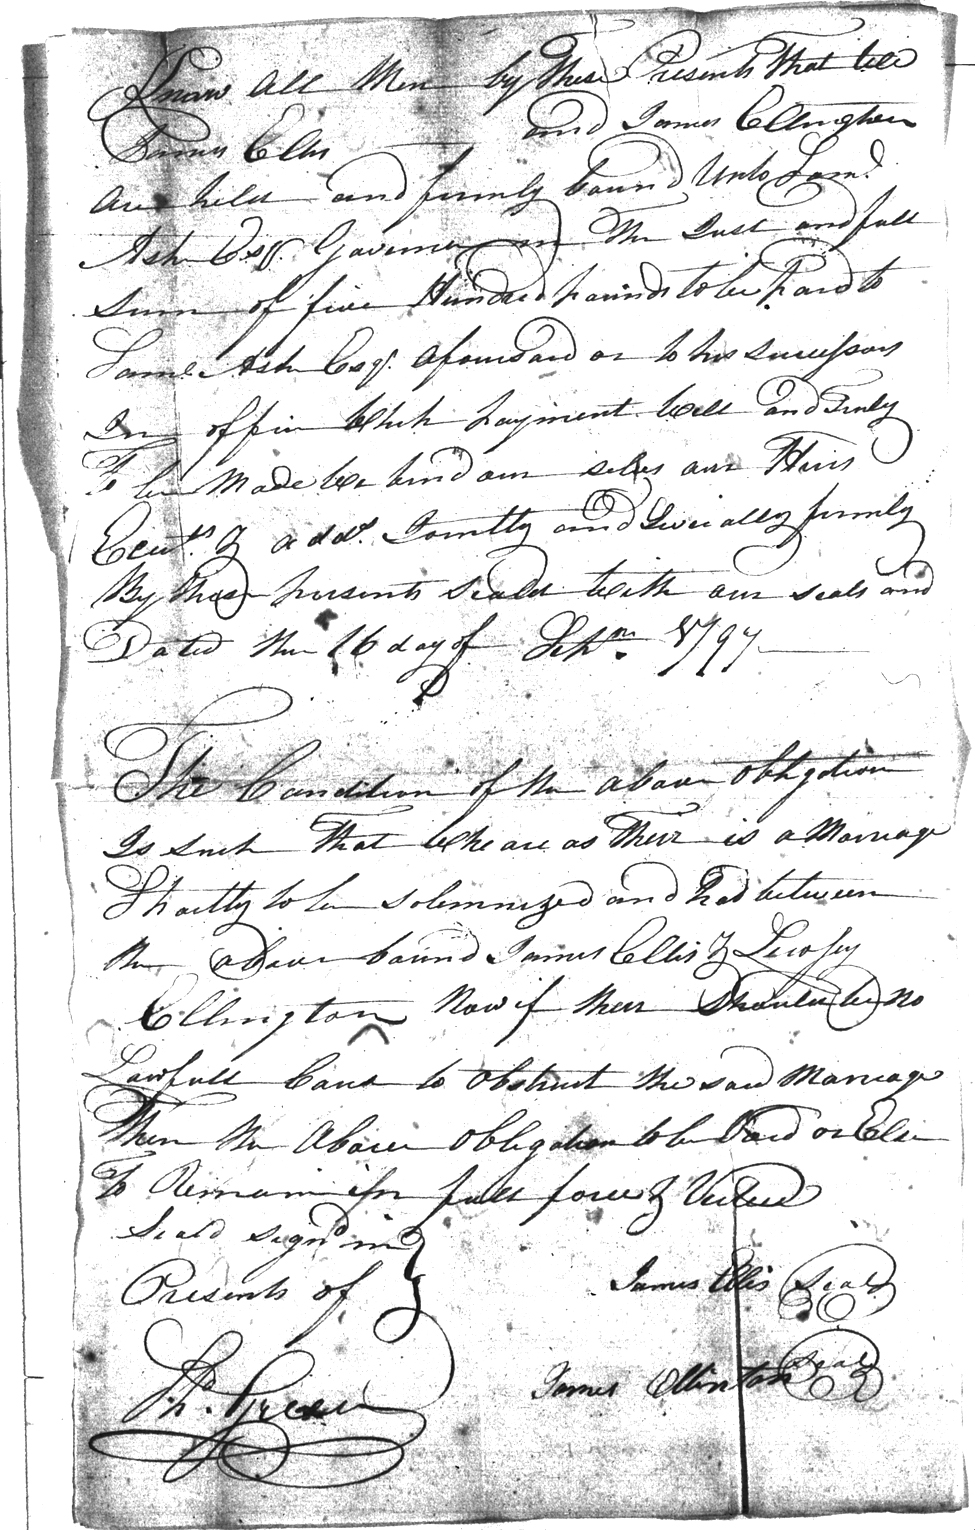 Know All Men by These Presents that We
James Ellis and James Ellington
Are held and firmly bound Unto Saml
Ash Esqr. Governer in the Just and full
Sum of five Hundred pounds to be paid to
Saml. Ash Esqr. Aforesaid or to his successors
In office Which payment Well and Truly
To be Made We bind our selves our Heirs
Ecuts. & adds. Jointly and Severally firmly
By these presents Seald With our seals and
Dated the 16 day of Sepbr. 1797
The Condition of the above Obligation
Is such That Wheare as Their is a Marriage
Shortly to be solemnized and had between
the above bound James Ellis &
Ellington Now if their Should be No
Lawfull Caus to Obstruct the said Marriage
Then the Above Obligation to be Void or Else
To Remain in full force & Virtue
Seald signd in
Presents of
James Ellis Seal
James Ellinton Seal
Th. Green